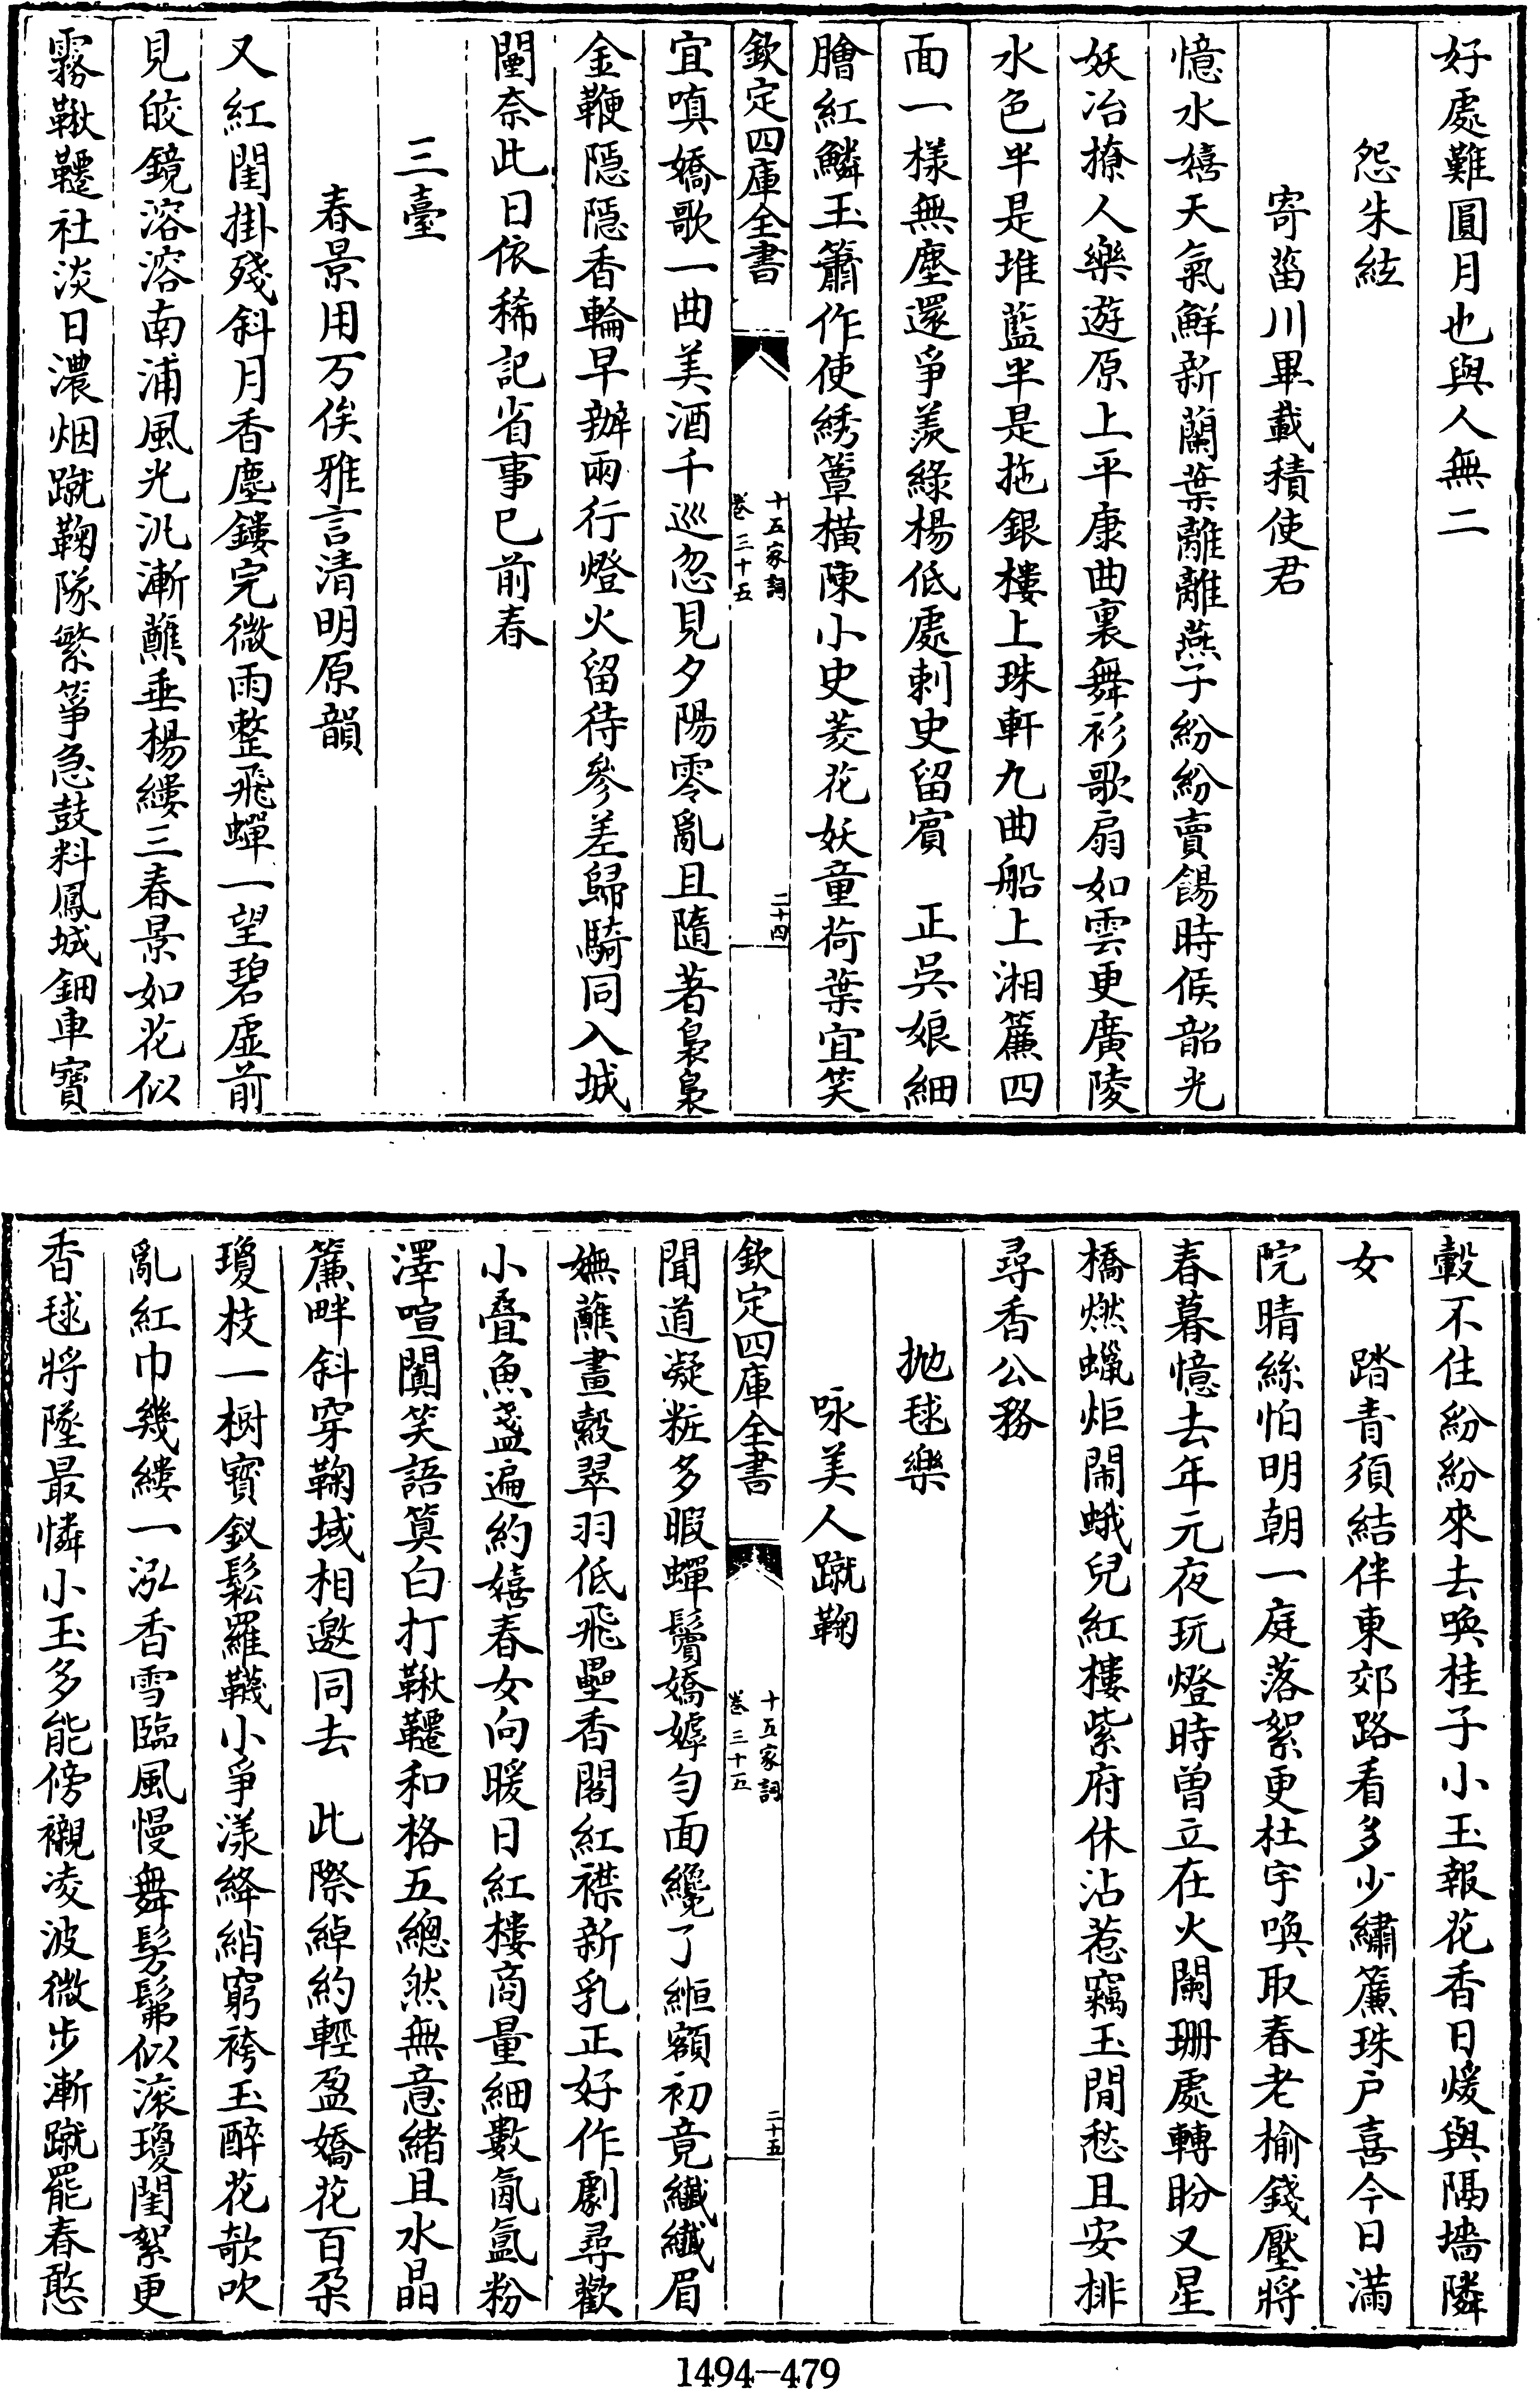 好處難圓月也與人無二
怨朱絃
寄菑川畢載積使君
憶水嬉天氣鮮新蘭葉離離燕子紛紛賣餳時候韶光
妖冶撩人樂遊原上平康曲裏舞衫歌扇如雲更廣陵
水色半是堆藍半是拖銀樓上珠軒九曲船上湘簾四
面一樣無塵還爭羨綠楊低處剌史留賓　正吳娘細
膾紅鱗玉簫作使綉簟橫陳小史菱花妖童荷葉宜笑
欽定四庫全書
十五家詞
卷三十五
二十四
宜嗔嬌歌一曲美酒千巡忽見夕陽零亂且隨著裊裊
金鞭隱隱香輪早辦兩行燈火留待參差歸騎同入城
闉奈此日依稀記省事已前春
三臺
春景用万俟雅言清明原韻
又紅閨掛殘斜月香塵鏤完微雨整飛蟬一望碧虛前
見皎鏡溶溶南浦風光沘漸蘸垂楊縷三春景如花似
霧鞦韆社淡日濃烟蹴鞠隊繁箏急鼓料鳳城鈿車寶
轂不住紛紛來去喚桂子小玉報花香日煖與隔墻隣
女　踏青須結伴東郊路看多少繡簾珠户喜今日滿
院晴絲怕明朝一庭落絮更杜宇喚取春老榆錢壓將
春暮憶去年元夜玩燈時曾立在火闌珊處轉盼又星
橋燃蠟炬鬧蛾兒紅樓紫府休沾惹竊玉閒愁且安排
尋香公務
拋毬樂
咏美人蹴鞠
欽定四庫全書
十五家詞
卷三十五
二十五
聞道凝粧多暇蟬鬢嬌嫭勻面纔了緪額初竟纎纎眉
嫵蘸畫縠翠羽低飛壘香閣紅襟新乳正好作劇尋歡
小疊魚箋遍約嬉春女向暖日紅樓商量細數氤氳粉
澤喧闐笑語算白打鞦韆和格五總然無意緒且水晶
簾畔斜穿鞠域相邀同去　此際綽約輕盈嬌花百朶
瓊枝一樹寶釵鬆羅襪小爭漾絳綃窮袴玉醉花欹吹
亂紅巾幾縷一泓香雪臨風慢舞髣髴似滚瓊閨絮更
香毬將墜最憐小玉多能傍襯凌波微步漸蹴罷春憨
1494-479